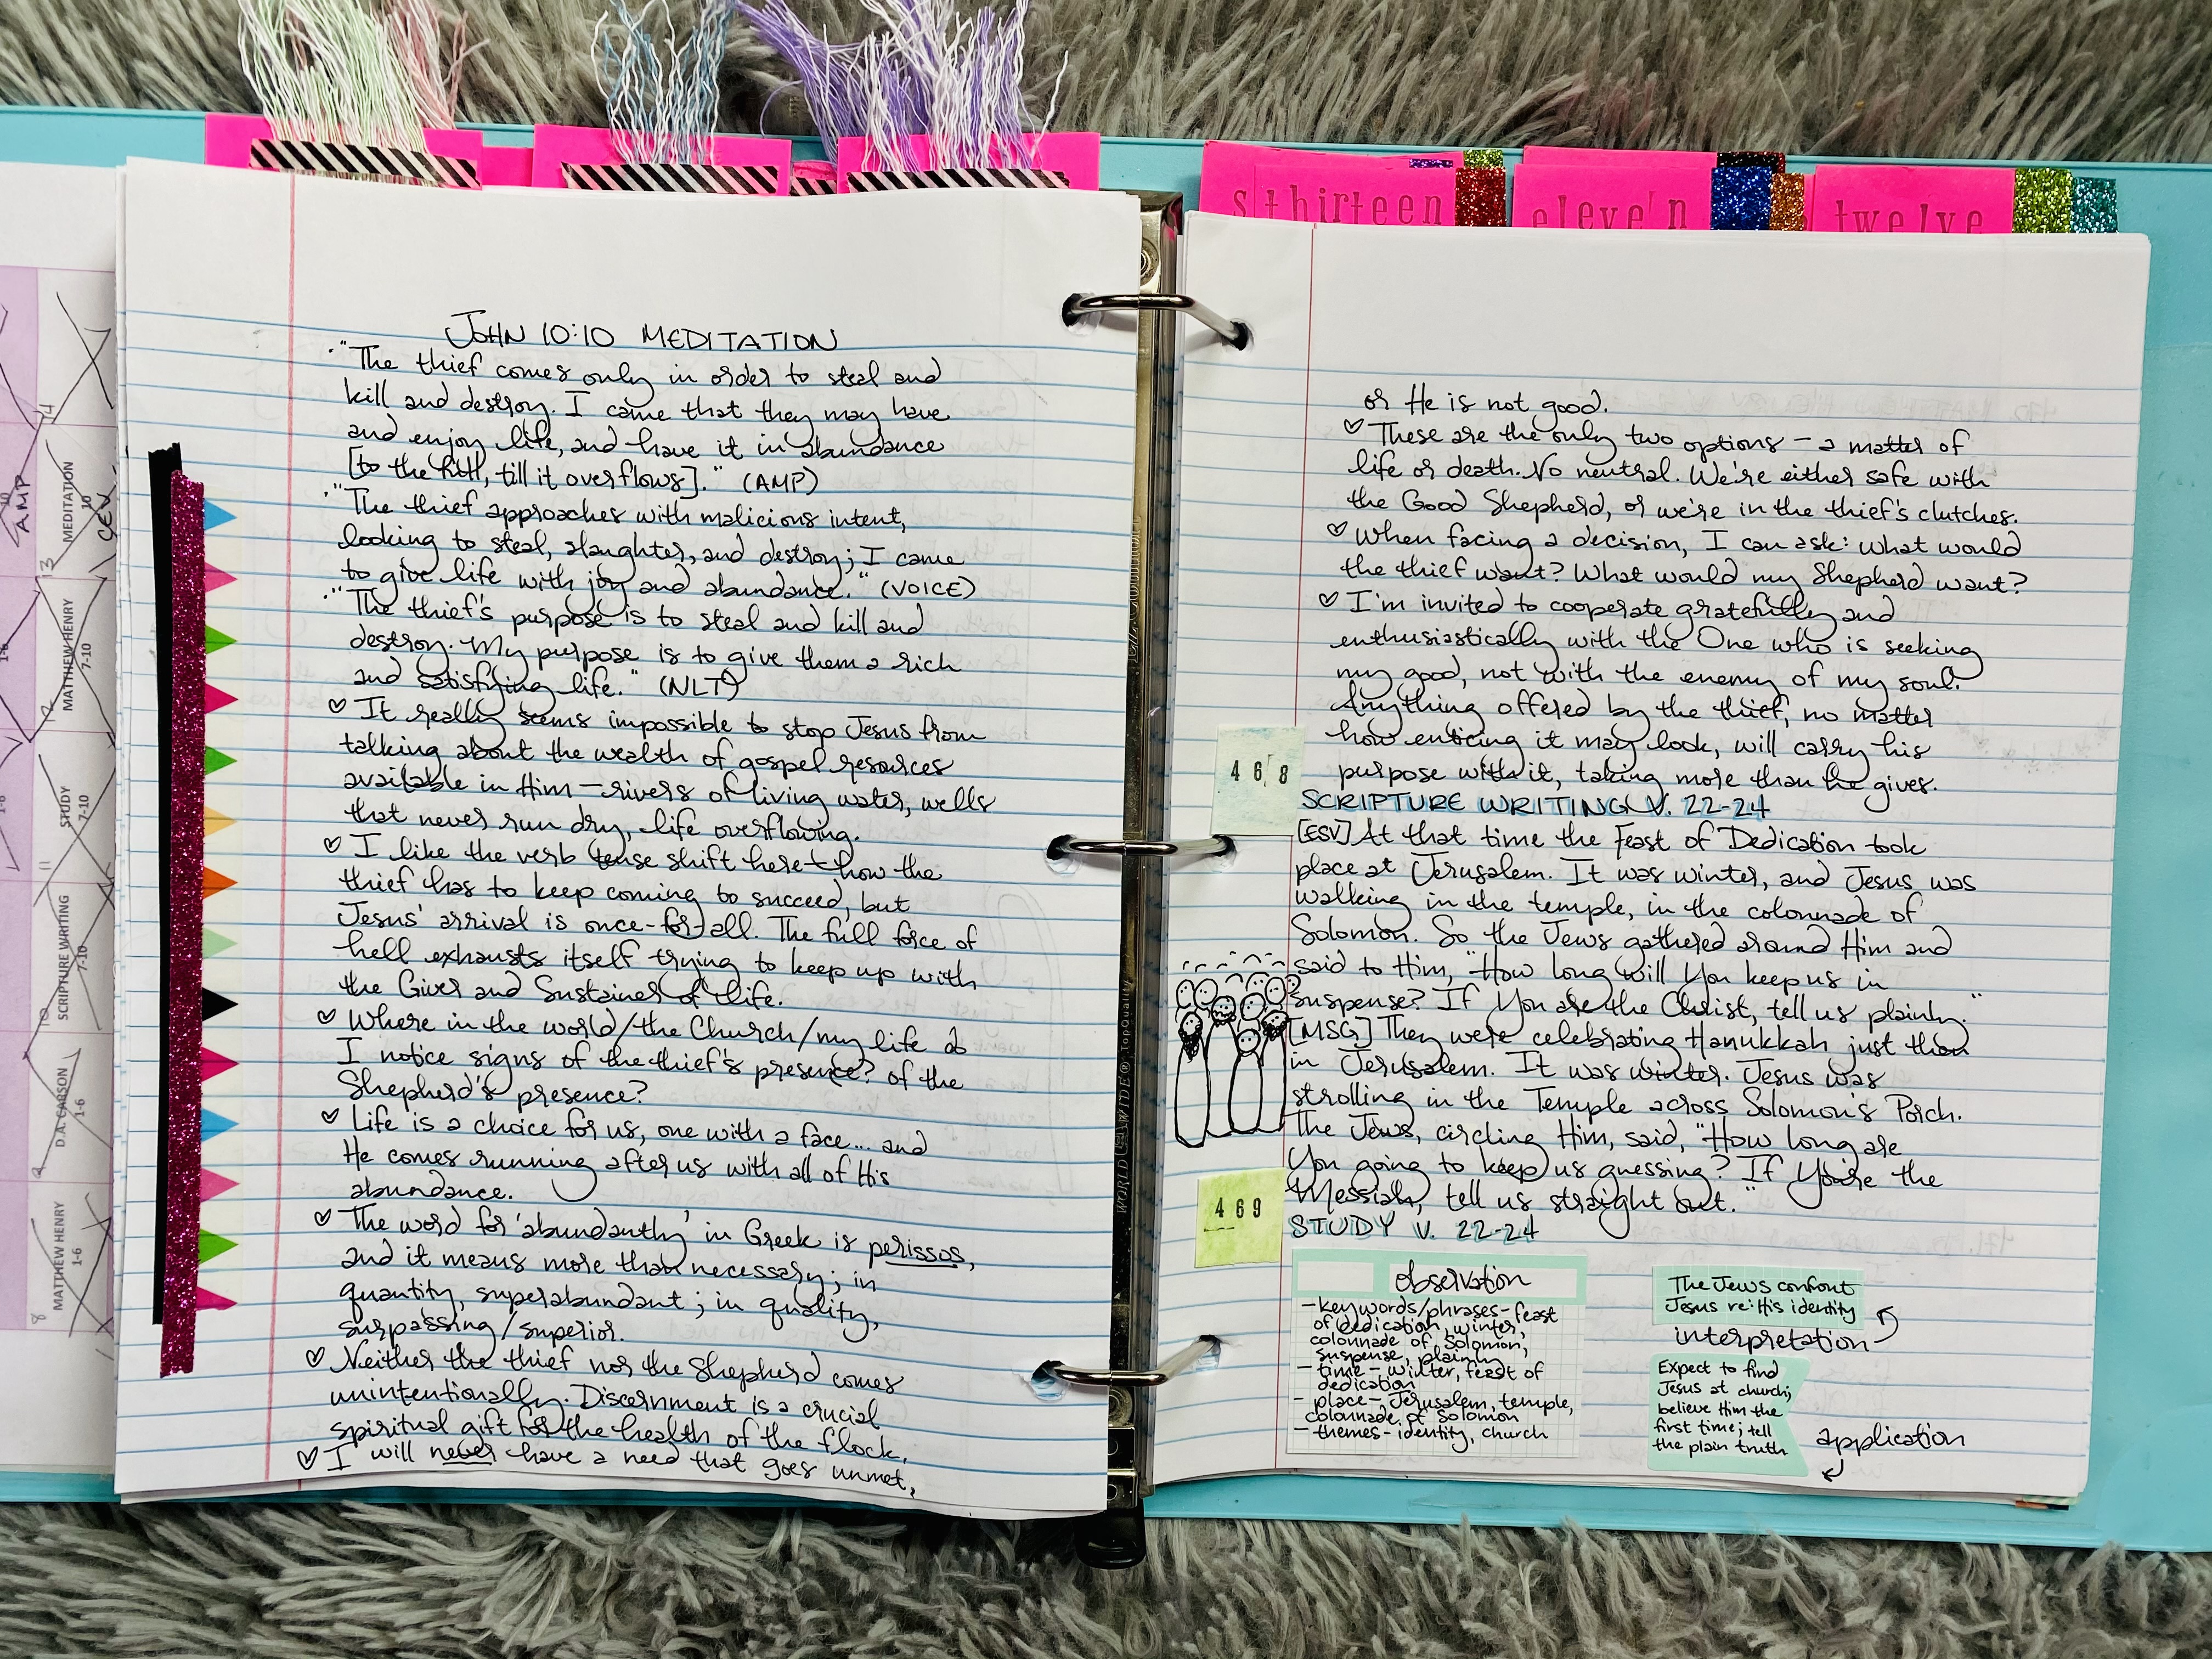 s thirteen
eleven
twelve
AMP
MEDITATION
10
CEV
14
13
MATTHEW HENRY
7-10
12
STUDY
7-10
11
SCRIPTURE WRITING
7-10
10
D.A. CARSON
1-6
9
MATTHEW HENRY
1-6
8
JOHN 10:10 MEDITATION
·"The thief comes only in order to steal and
kill and destroy. I came that they may have
and enjoy life, and have it in abundance
[to the full, till it overflows]." (AMP)
·"The thief approaches with malicious intent,
looking to steal, slaughter, and destroy; I came
to give life with joy and abundance." (VOICE)
·"The thief's purpose is to steal and kill and
destroy. My purpose is to give them a rich
and satisfying life." (NLT)
♡ It really seems impossible to stop Jesus from
talking about the wealth of gospel resources
available in Him—rivers of living water, wells
that never run dry, life overflowing.
♡ I like the verb tense shift here—how the
thief has to keep coming to succeed, but
Jesus' arrival is once-for-all. The full force of
hell exhausts itself trying to keep up with
the Giver and Sustainer of life.
♡ Where in the world/the Church/my life do
I notice signs of the thief's presence? of the
Shepherd's presence?
♡ Life is a choice for us, one with a face... and
He comes running after us with all of His
abundance.
♡ The word for 'abundantly' in Greek is perissos,
and it means more than necessary; in
quantity, superabundant; in quality,
surpassing/superior.
♡ Neither the thief nor the Shepherd comes
unintentionally. Discernment is a crucial
spiritual gift for the health of the flock.
♡ I will never have a need that goes unmet,
WORLD WIDE® TopQuality
or He is not good.
♡ These are the only two options — a matter of
life or death. No neutral. We're either safe with
the Good Shepherd, or we're in the thief's clutches.
♡ When facing a decision, I can ask: What would
the thief want? What would my Shepherd want?
♡ I'm invited to cooperate gratefully and
enthusiastically with the One who is seeking
my good, not with the enemy of my soul.
Anything offered by the thief, no matter
how enticing it may look, will carry his
purpose with it, taking more than he gives.
468
SCRIPTURE WRITING V. 22-24
[ESV] At that time the Feast of Dedication took
place at Jerusalem. It was winter, and Jesus was
walking in the temple, in the colonnade of
Solomon. So the Jews gathered around Him and
said to Him, "How long will You keep us in
suspense? If You are the Christ, tell us plainly."
[MSG] They were celebrating Hanukkah just then
in Jerusalem. It was winter. Jesus was
strolling in the Temple across Solomon's Porch.
The Jews, circling Him, said, "How long are
You going to keep us guessing? If You're the
Messiah, tell us straight out."
469
STUDY V. 22-24
observation
- keywords/phrases - feast
of dedication, winter,
colonnade of Solomon,
suspense, plainly
- time - winter, feast of
dedication
- place - Jerusalem, temple,
colonnade of Solomon
- themes - identity, church
The Jews confront
Jesus re: His identity
interpretation
Expect to find
Jesus at church;
believe Him the
first time; tell
the plain truth
application